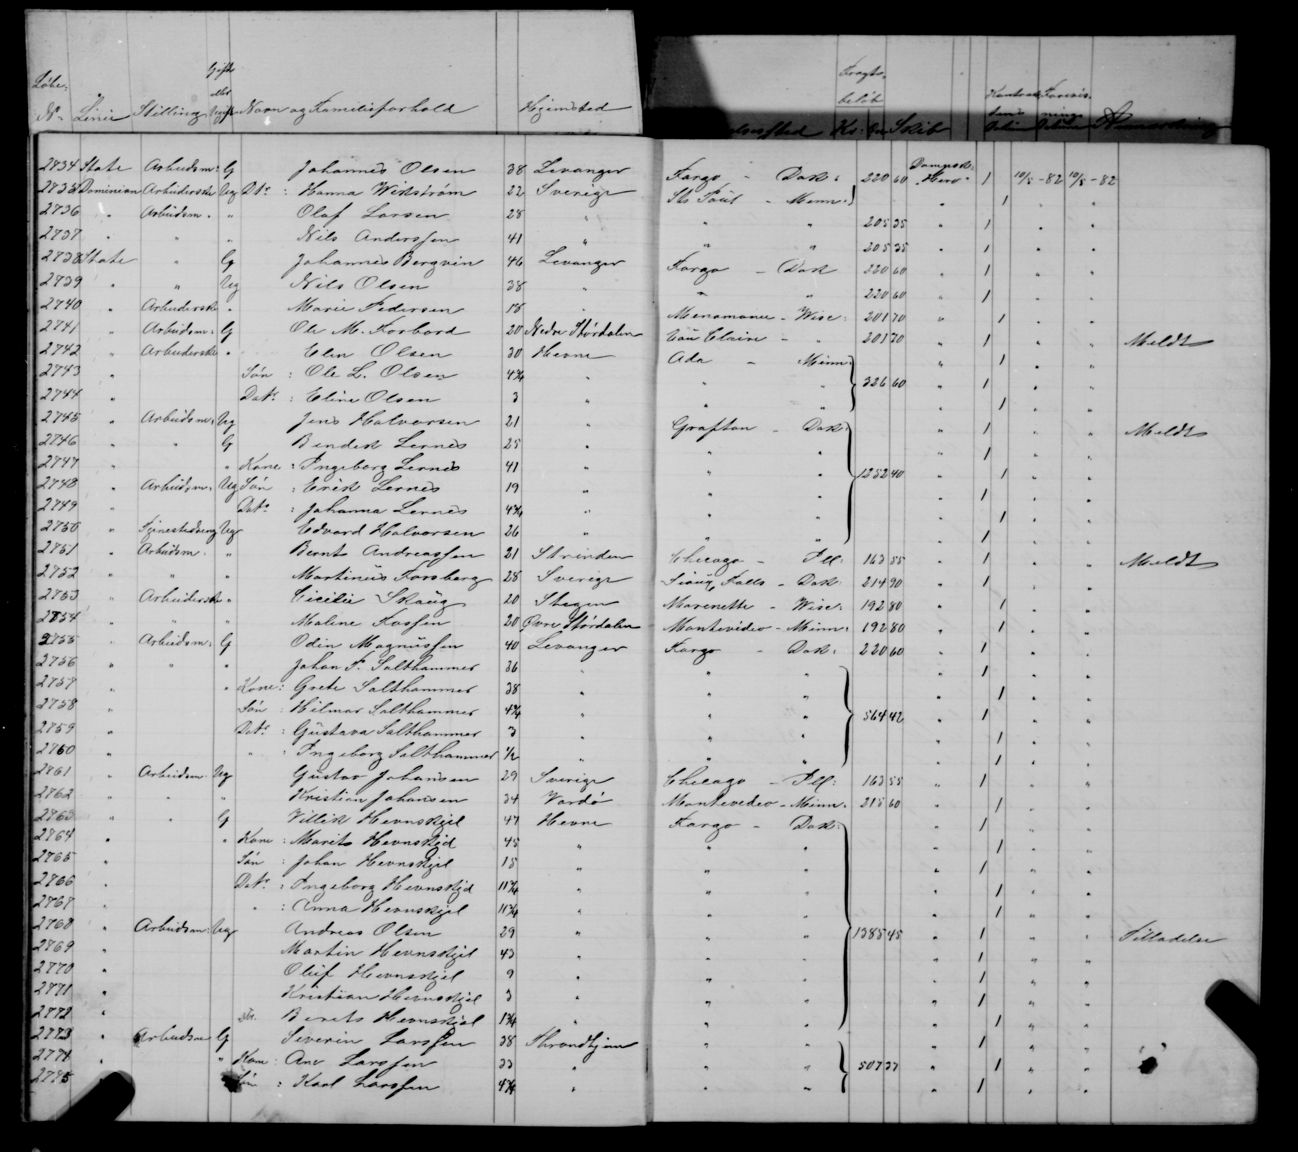 Løbe- Gift eller Ugift Fragtbeløb Kontrakt Forevis-
No Linie Stilling Navn og Familieforhold Hjemsted Kr: Øre Skib Anmærkning
2734 State Arbeidsm: G Johannes Olsen 38 Levanger Fargo - Dak: 220 60 Dampsk: Hero 1 10/5-82 10/5-82
2735 Dominion Arbeiderske Ug Datr: Hanna Wikstrøm 22 Sverige St. Paul - Minn: " 1 " "
2736 " Arbeidsm. " Olaf Larsen 28 " " " 205 35 " 1 " "
2737 " " " Nils Anderssen 41 " " " 205 35 " 1 " "
2738 State " G Johannes Bergvin 46 Levanger Fargo - Dak 220 60 " 1 " "
2739 " " Ug Nils Olsen 38 " " " 220 60 " 1 " "
2740 " Arbeiderske " Marie Pedersen 18 " Menomonie - Wisc: 201 70 " 1 " "
2741 " Arbeidsm: G Ole M. Forbord 20 Nedre Størdalen Eau Claire - " 201 70 " 1 " " Meldt
2742 " Arbeiderske " Elen Olsen 30 Hevne Ada - Minn: " 1 " "
2743 " Søn: Ole L. Olsen 4¾ " " " 326 60 " 1 " "
2744 " Datr: Eline Olsen 3 " " " " 1 " "
2745 " Arbeidsm: Ug Jens Halvorsen 21 " Grafton - Dak: " 1 " " Meldt
2746 " " G Bendik Lernes 25 " " " " 1 " "
2747 " " Kone: Ingeborg Lernes 41 " " " 1252 40 " 1 " "
2748 " Arbeidsm: Ug Søn: Erik Lernes 19 " " " " 1 " "
2749 " Datr: Johanna Lernes 4¾ " " " " 1 " "
2750 " Ug Edvard Halvorsen 26 " " " " 1 " "
2751 " Arbeidsm. " Bernt Andreassen 21 Strinden Chicago - Ill: 163 55 " 1 " " Meldt
2752 " " " Martinus Forsberg 28 Sverige Sioux Falls - Dak: 214 90 " 1 " "
2753 " Arbeiderske " Cicilie Skaug 20 Stegen Marenette - Wisc: 192 80 " 1 " "
2754 " " " Maline Aassen 20 Øvre Størdalen Montevideo - Minn: 192 80 " 1 " "
2755 " Arbeidsm: G Odin Magnussen 40 Levanger Fargo - Dak: 220 60 " 1 " "
2756 " " " Johan P. Salthammer 36 " " " " 1 " "
2757 " " Kone: Grete Salthammer 38 " " " " 1 " "
2758 " Søn: Hilmar Salthammer 4¾ " " " 564 42 " 1 " "
2759 " Datr: Gustava Salthammer 3 " " " " 1 " "
2760 " " Ingeborg Salthammer ½ " " " " 1 " "
2761 " Arbeidsm. Ug Gustav Johansen 29 Sverige Chicago - Ill: 163 55 " 1 " "
2762 " " " Kristian Johansen 34 Vardø Montevideo - Minn. 215 60 " 1 " "
2763 " " G Villik Hevnskjel 47 Hevne Fargo - Dak: " 1 " "
2764 " " Kone: Marit Hevnskjel 45 " " " " 1 " "
2765 " Søn: Johan Hevnskjel 15 " " " " 1 " "
2766 " Datr: Ingeborg Hevnskjel 11¾ " " " " 1 " "
2767 " " Anna Hevnskjel 11¾ " " " " 1 " "
2768 " Arbeidsm: Ug Andreas Olsen 29 " " " 1385 45 " 1 " " Tilladelse
2769 " Martin Hevnskjel 43 " " " " 1 " "
2770 " Oluf Hevnskjel 9 " " " " 1 " "
2771 " Kristian Hevnskjel 3 " " " " 1 " "
2772 " Dtr. Beret Hevnskjel 1¾ " " " " 1 " "
2773 " Arbeidsm G Severin Larssen 38 Throndhjem " " " 1 " "
2774 " " Kone: Ane Larssen 33 " " " 507 37 " 1 " "
2775 " Søn: Karl Larssen 4¾ " " " " 1 " "